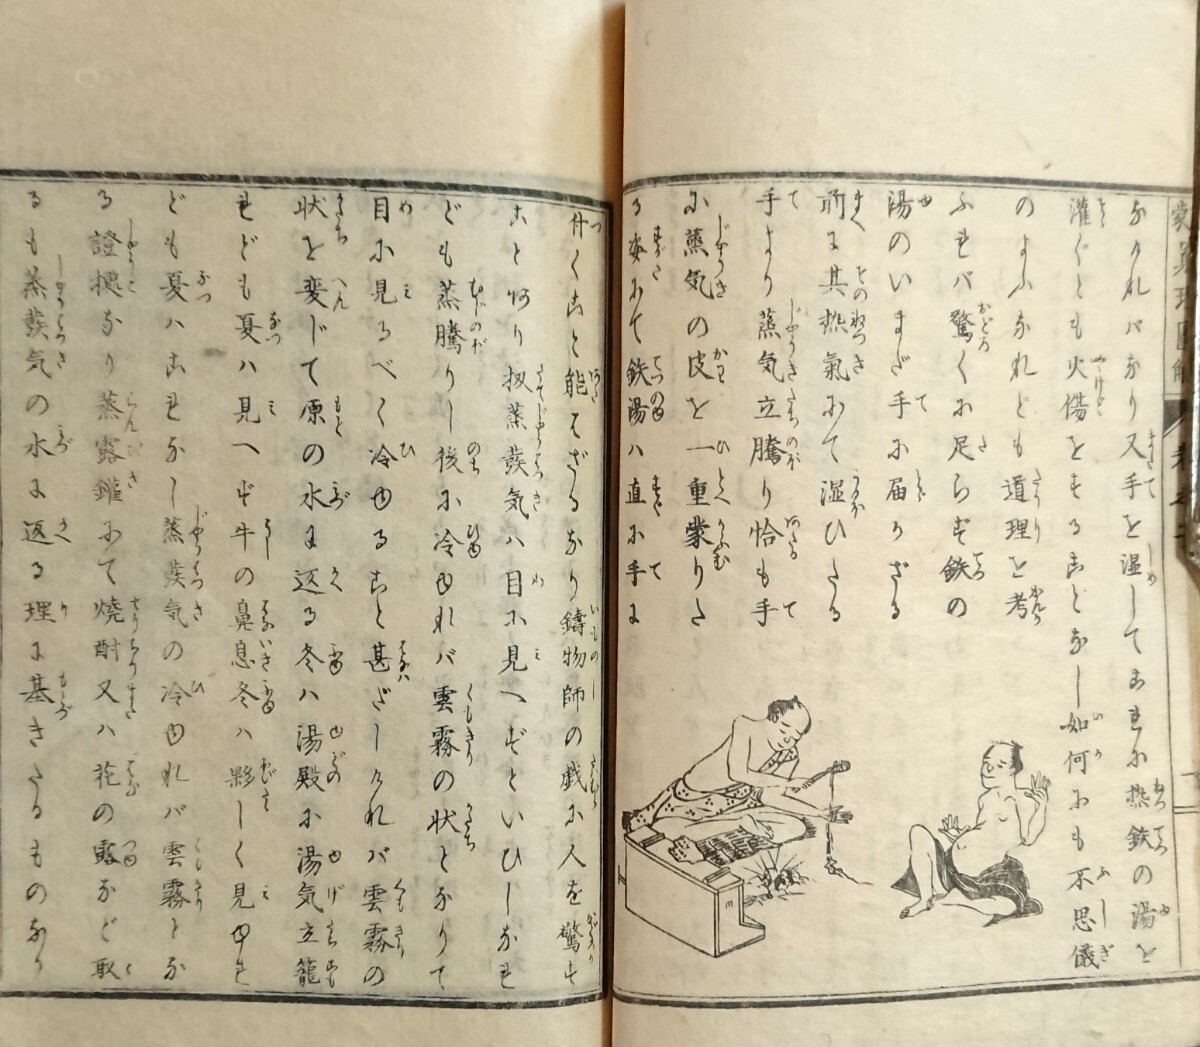 蒙窮理圖解
なけれバなり又手を湿してこれに熱鉄の湯を
灌ぐとも火傷をすることなし如何にも不思儀
のよふなれども道理を考
ふれバ驚くに足らず鉄の
湯のいまだ手に届かざる
前に其熱氣にて湿ひたる
手より蒸気立騰り恰も手
に蒸気の皮を一重蒙りた
る姿にて鉄湯ハ直に手に
付くこと能はざるなり鋳物師の戯に人を驚す
こと阿り扨蒸發気ハ目に見へずといひしなれ
ども蒸騰りし後に冷ゆれバ雲霧の状となりて
目に見るべく冷ゆること甚ざしけれバ雲霧の
状を変じて原の水に返る冬ハ湯殿に湯気立籠
れども夏ハ見へず牛の鼻息冬ハ夥しく見ゆれ
ども夏ハこれなし蒸發気の冷ゆれバ雲霧とな
る證拠なり蒸露鑵にて焼酎又ハ花の露など取
るも蒸發気の水に返る理に基きたるものなり